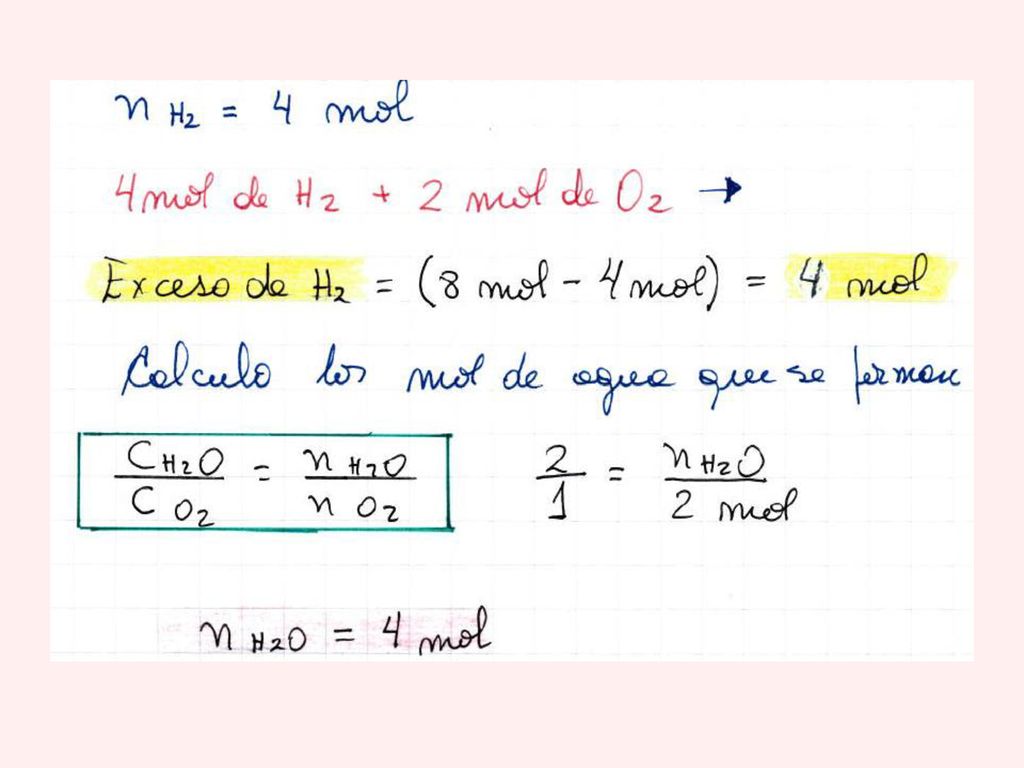 n H2 = 4 mol
4 mol de H2 + 2 mol de O2 →
Exceso de H2 = (8 mol - 4 mol) = 4 mol
Calculo los mol de agua que se forman
C H2O / C O2 = n H2O / n O2 2/1 = n H2O / 2 mol
n H2O = 4 mol